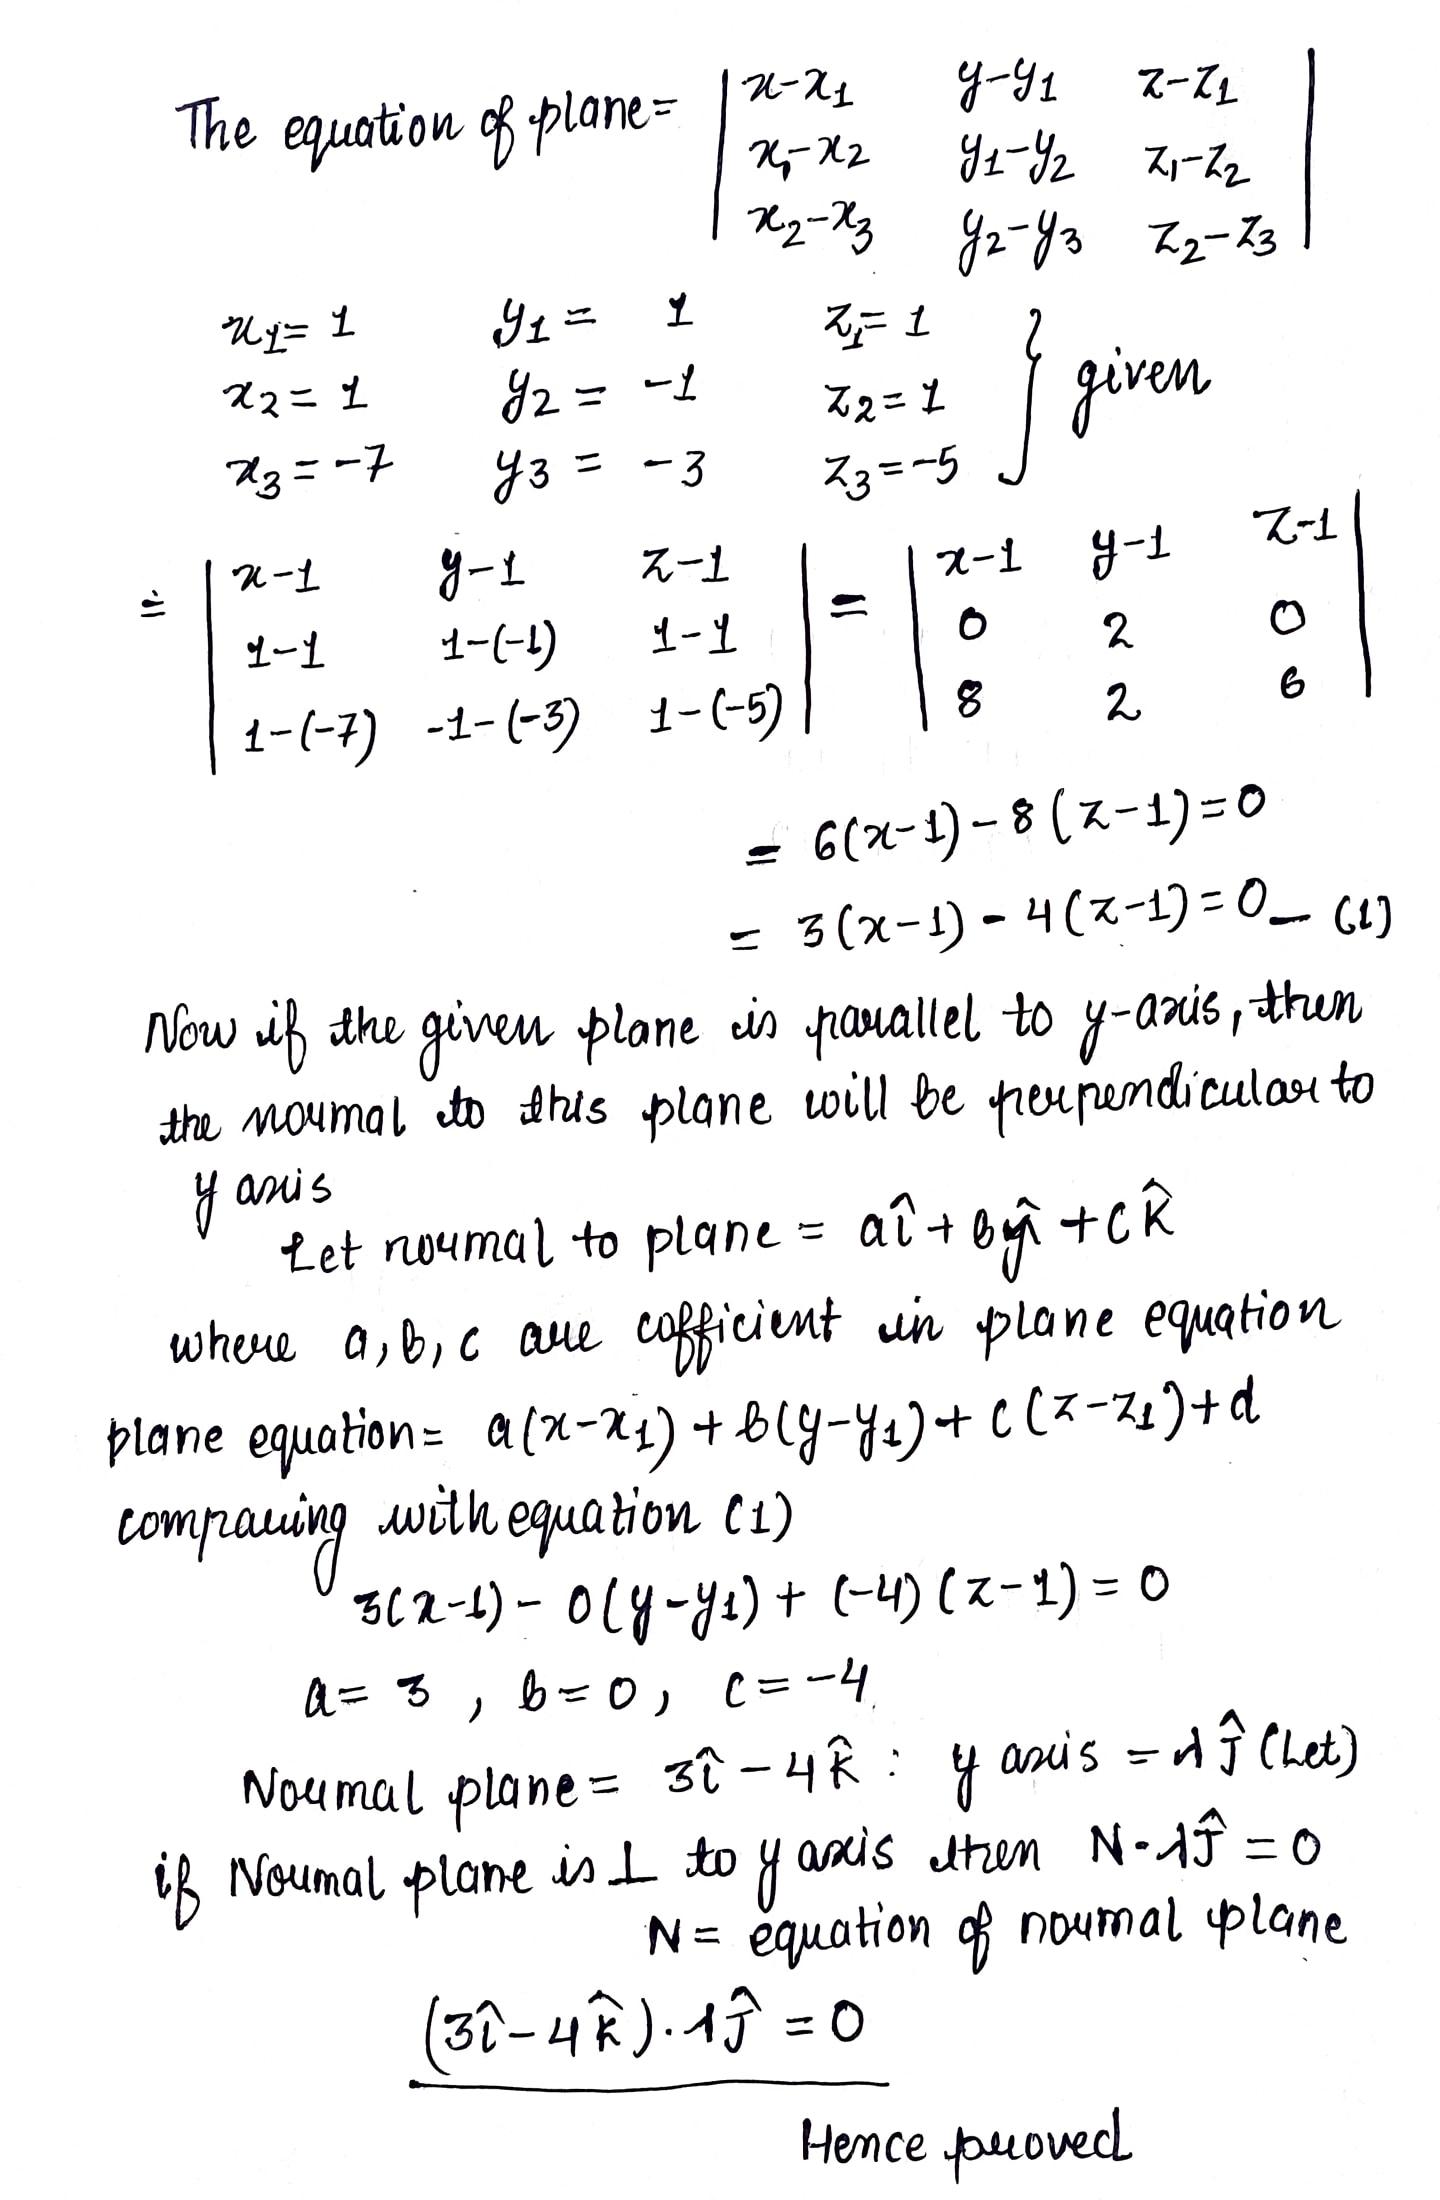 The equation of plane = | x-x1 y-y1 z-z1 |
| x1-x2 y1-y2 z1-z2 |
| x2-x3 y2-y3 z2-z3 |
x1 = 1 y1 = 1 z1 = 1
x2 = 1 y2 = -1 z2 = 1 } given
x3 = -7 y3 = -3 z3 = -5
= | x-1 y-1 z-1 | = | x-1 y-1 z-1 |
| 1-1 1-(-1) 1-1 | | 0 2 0 |
| 1-(-7) -1-(-3) 1-(-5) | | 8 2 6 |
= 6(x-1) - 8(z-1) = 0
= 3(x-1) - 4(z-1) = 0 — (1)
Now if the given plane is parallel to y-axis, then
the normal to this plane will be perpendicular to
y axis
Let normal to plane = aî + bĵ + ck̂
where a, b, c are cofficient in plane equation
plane equation = a(x-x1) + b(y-y1) + c(z-z1) + d
comparing with equation (1)
3(x-1) - 0(y-y1) + (-4)(z-1) = 0
a = 3 , b = 0 , c = -4
Normal plane = 3î - 4k̂ : y axis = λĵ (Let)
if Normal plane is ⊥ to y axis then N·λĵ = 0
N = equation of normal plane
(3î - 4k̂)·λĵ = 0
Hence proved